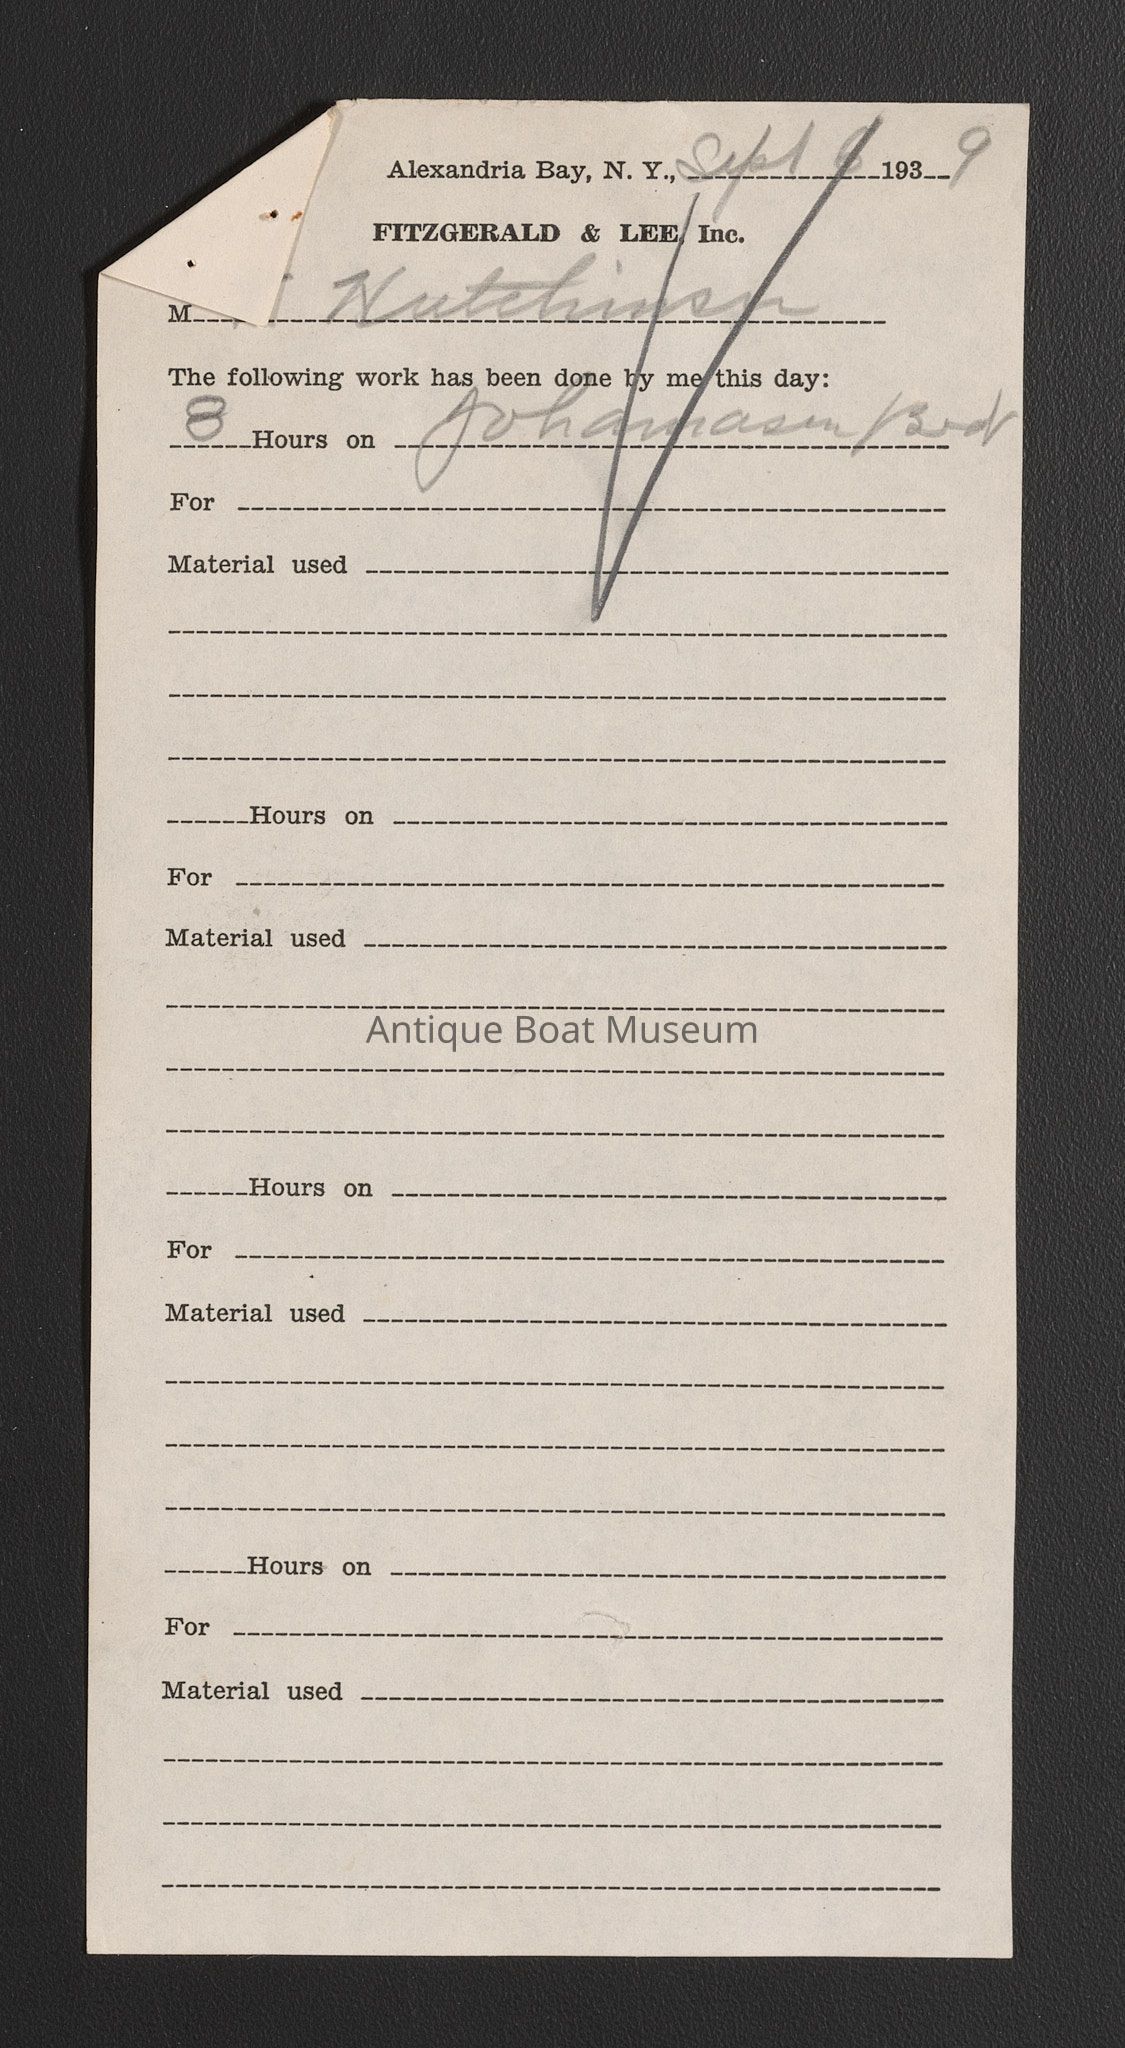 Alexandria Bay, N. Y., Sept 6 1939
FITZGERALD & LEE, Inc.
M Hutchinson
The following work has been done by me this day:
8 Hours on Johannasen Boat
For
Material used
Hours on
For
Material used
Antique Boat Museum
Hours on
For
Material used
Hours on
For
Material used